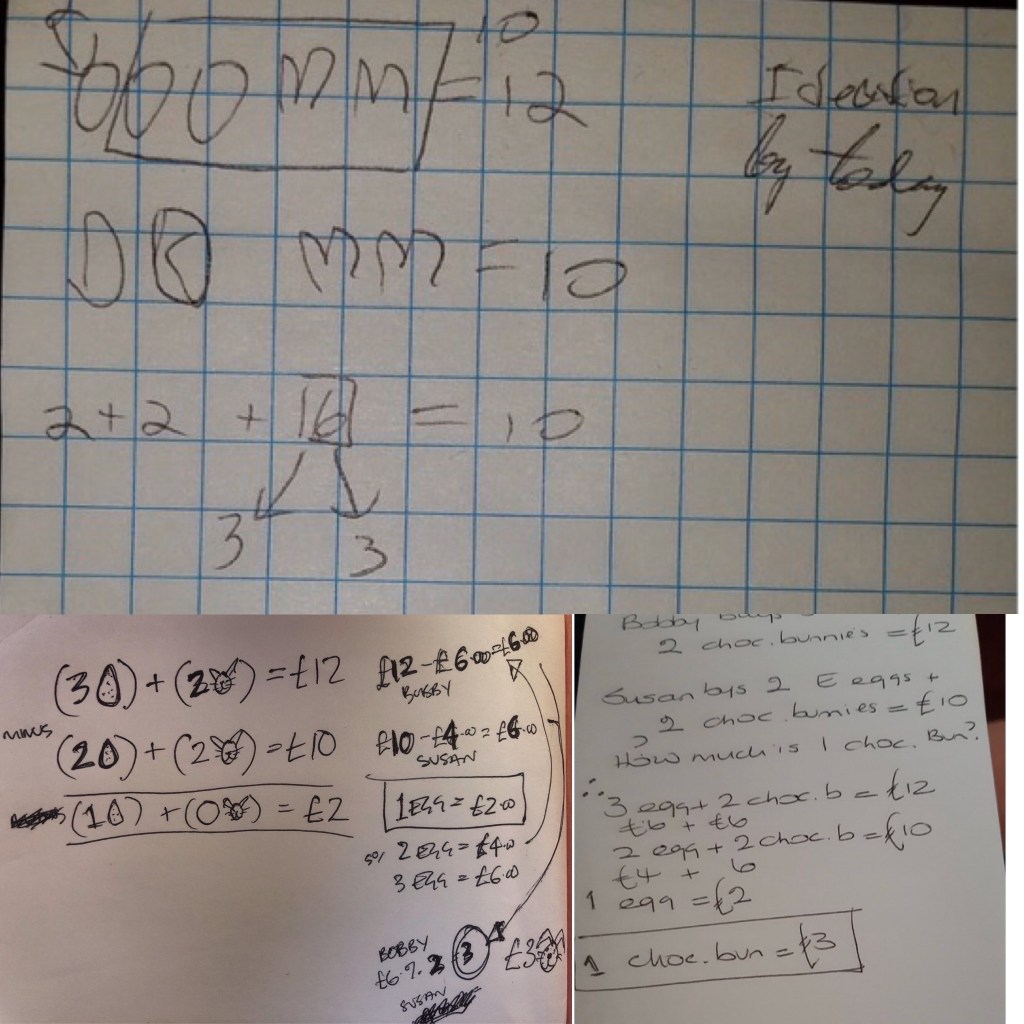 10
000MM = 12
Ideation
by today
00 MM = 10
2+2 + 16 = 10
3 3
(3) + (2) = £12
minus
(2) + (2) = £10
(1) + (0) = £2
£12 - £6.00 = £6.00
BOBBY
£10 - £4.00 = £6.00
SUSAN
1 EGG = £2.00
2 EGG = £4.00
3 EGG = £6.00
BOBBY
£6
3
£3
SUSAN
Bobby buys
2 choc. bunnies = £12
Susan bys 2 E eggs +
2 choc. bunnies = £10
?
How much is 1 choc. Bun?
∴ 3 egg + 2 choc. b = £12
£6 + £6
2 egg + 2 choc. b = £10
£4 + 6
1 egg = £2
1 choc. bun = £3